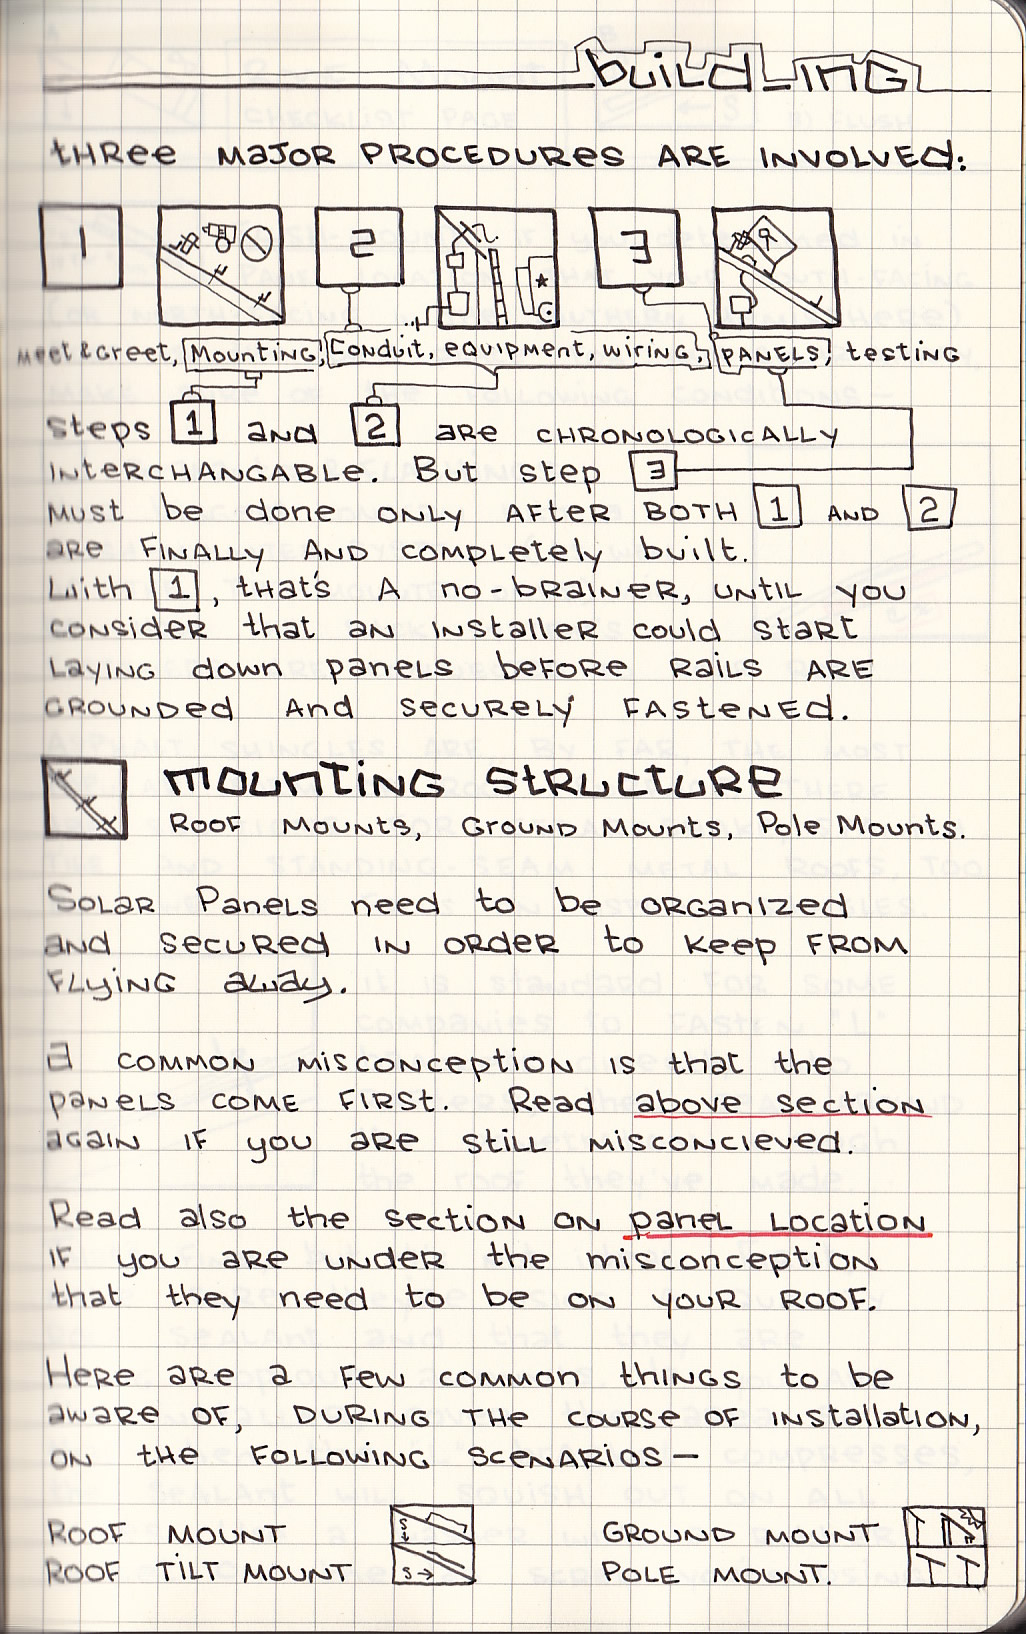 building
three major procedures are involved:
1 2 3
meet & greet, Mounting, Conduit, equipment, wiring, PANELS, testing
Steps 1 and 2 are chronologically
interchangable. But step 3
must be done only after both 1 and 2
are finally and completely built.
With 1, that's a no-brainer, until you
consider that an installer could start
laying down panels before rails are
grounded and securely fastened.
mounting structure
Roof Mounts, Ground Mounts, Pole Mounts.
Solar Panels need to be organized
and secured in order to keep from
flying away.
A common misconception is that the
panels come first. Read above section
again if you are still misconcieved.
Read also the section on panel location
if you are under the misconception
that they need to be on your roof.
Here are a few common things to be
aware of, during the course of installation,
on the following scenarios—
Roof mount S Ground mount
Roof tilt mount S Pole mount.